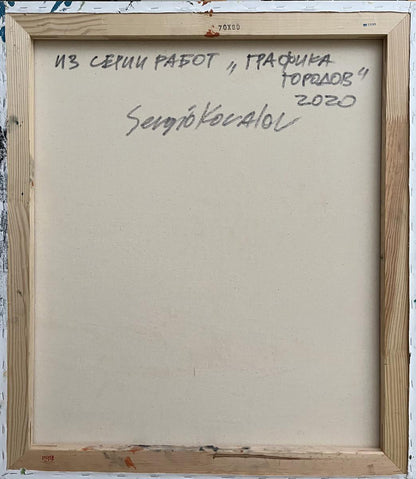 70X80
ИЗ СЕРИИ РАБОТ „ГРАФИКА
ГОРОДОВ"
2020
SergióKovalov